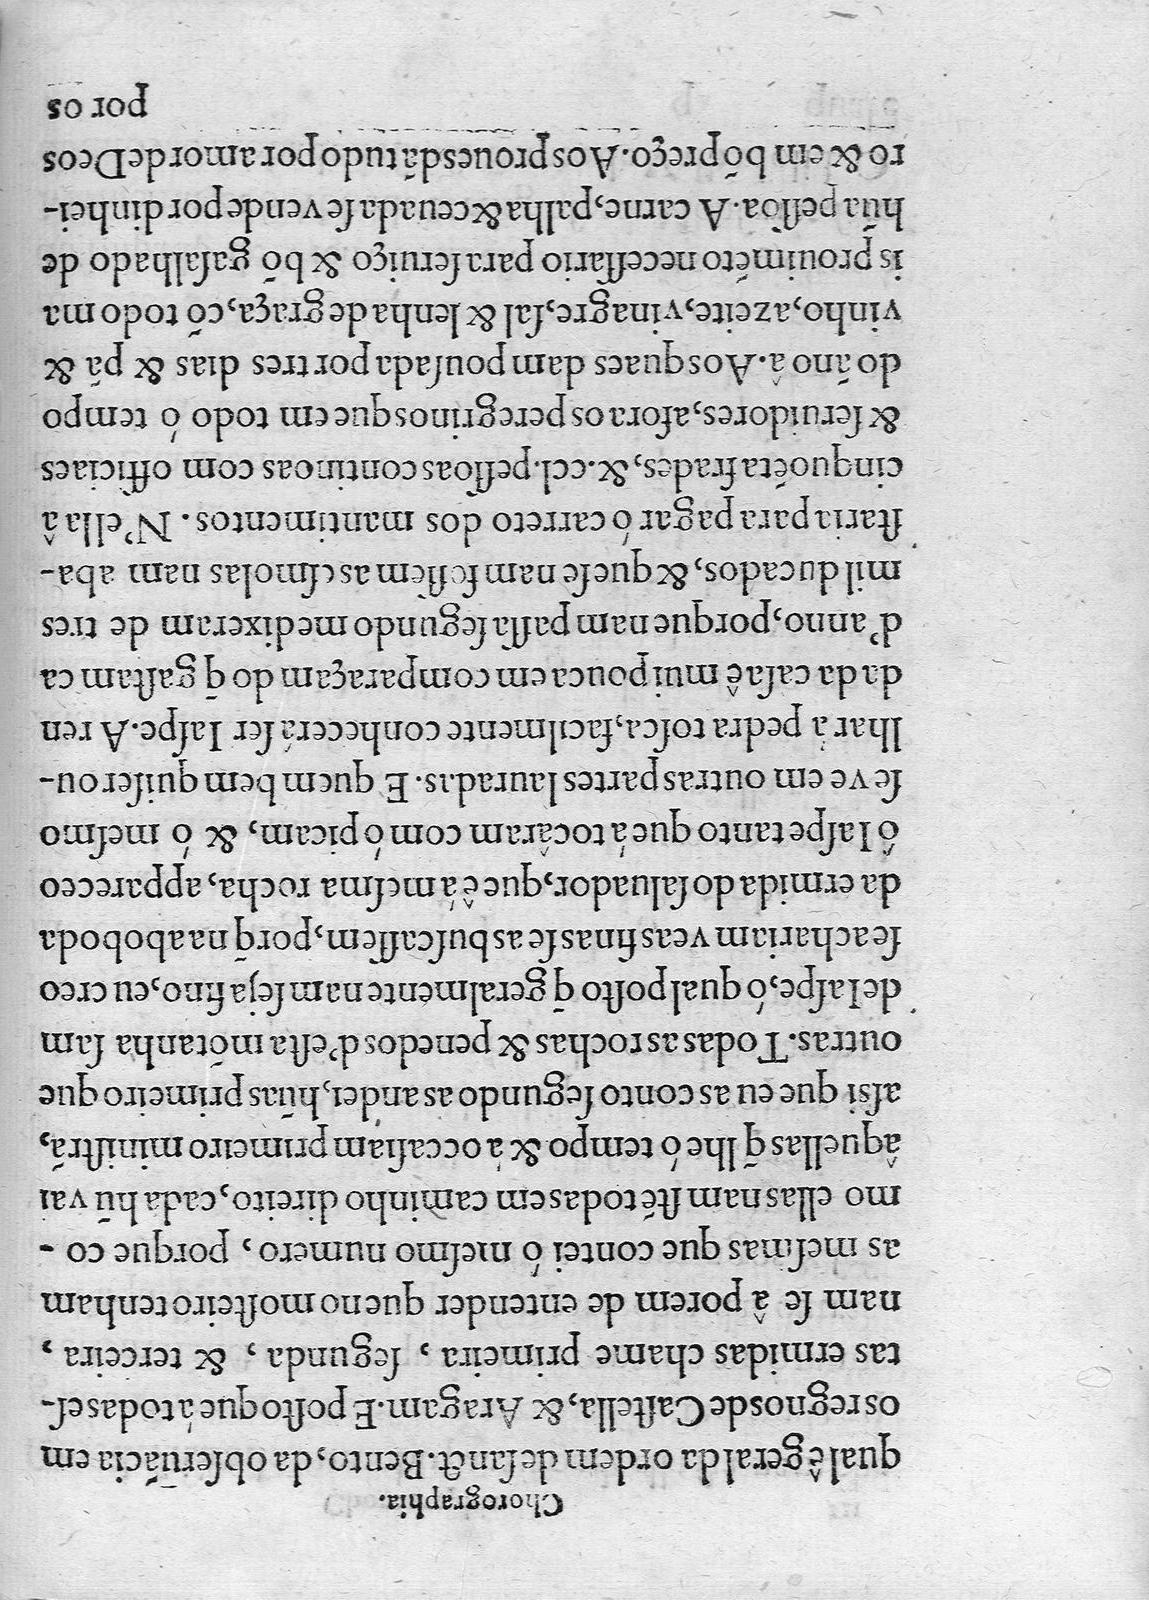 Chorographia.
qual ê geral da ordem de sanct. Bento, da obseruãcia em
os regnos de Castella, & Aragam. E posto que á todas es-
tas ermidas chame primeira, segunda, & terceira,
nam se â porem de entender que no mosteiro tenham
as mesmas que contei ó mesmo numero, porque co-
mo ellas nam stẽ todas em caminho direito, cada hũ vai
âquellas q̃ lhe ó tempo & á occasiam primeiro ministrã,
assi que eu as conto segundo as andei, hũas primeiro que
outras. Todas as rochas & penedos d'esta mõtanha sam
de Iaspe, ó qual posto q̃ geralmente nam seja fino, eu creo
se achariam veas finas se as buscassem, porq̃ na aboboda
da ermida do saluador, que ê á mesma rocha, appareceo
ó Iaspe tanto que á tocâram com ó picam, & ó mesmo
se ve em outras partes lauradas. E quem bem quiser ou-
lhar á pedra tosca, facilmente conhecerá ser Iaspe. A ren
da da casa ê mui pouca em comparaçam do q̃ gastam ca
d'anno, porque nam passa segundo me dixeram de tres
mil ducados, & que se nam fossem as esmolas nam aba-
staria para pagar ó carreto dos mantimentos. N'ella â
cinquoẽta frades, &. ccl. pessoas continoas com officiaes
& seruidores, afora os peregrinos que em todo ó tempo
do ãno â. Aos quaes dam pousada por tres dias & pã &
vinho, azeite, vinagre, sal & lenha de graça, cõ todo ma
is prouimẽto necessario para seruiço & bõ gasalhado de
hũa pessoa. A carne, palha & ceuada se vende por dinhei-
ro & em bõ preço. Aos proues dã tudo por amor de Deos
por os